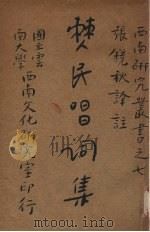 西南研究叢書之七
張鏡秋譯註
僰民唱詞集
國立雲南大學西南文化研究室印行
mtoou.info
mtoou.info